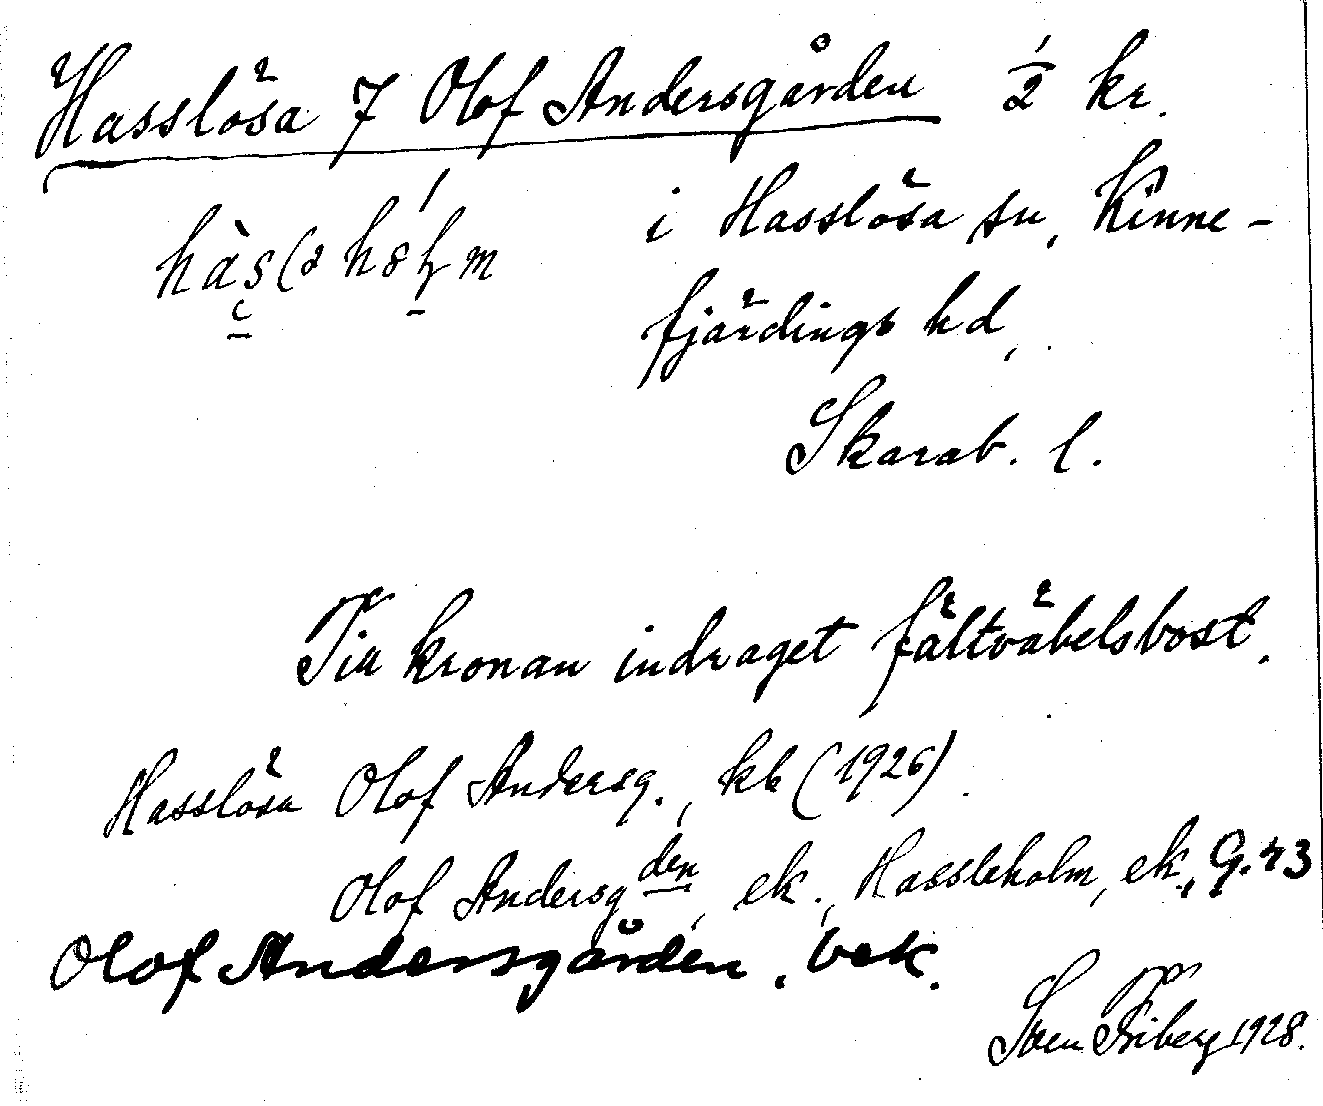 Hasslösa 7 Olof Andersgården 1/2 kr.
i Hasslösa sn, Kinne-
fjärdings hd,
Skarab. l.
Till kronan indraget fältväbelsbost.
Hasslösa Olof Andersg., kb (1926).
Olof Andersgden, ek., Hassleholm, ek., G. 43
Olof Andersgården, bek.
Sven Friberg 1928.